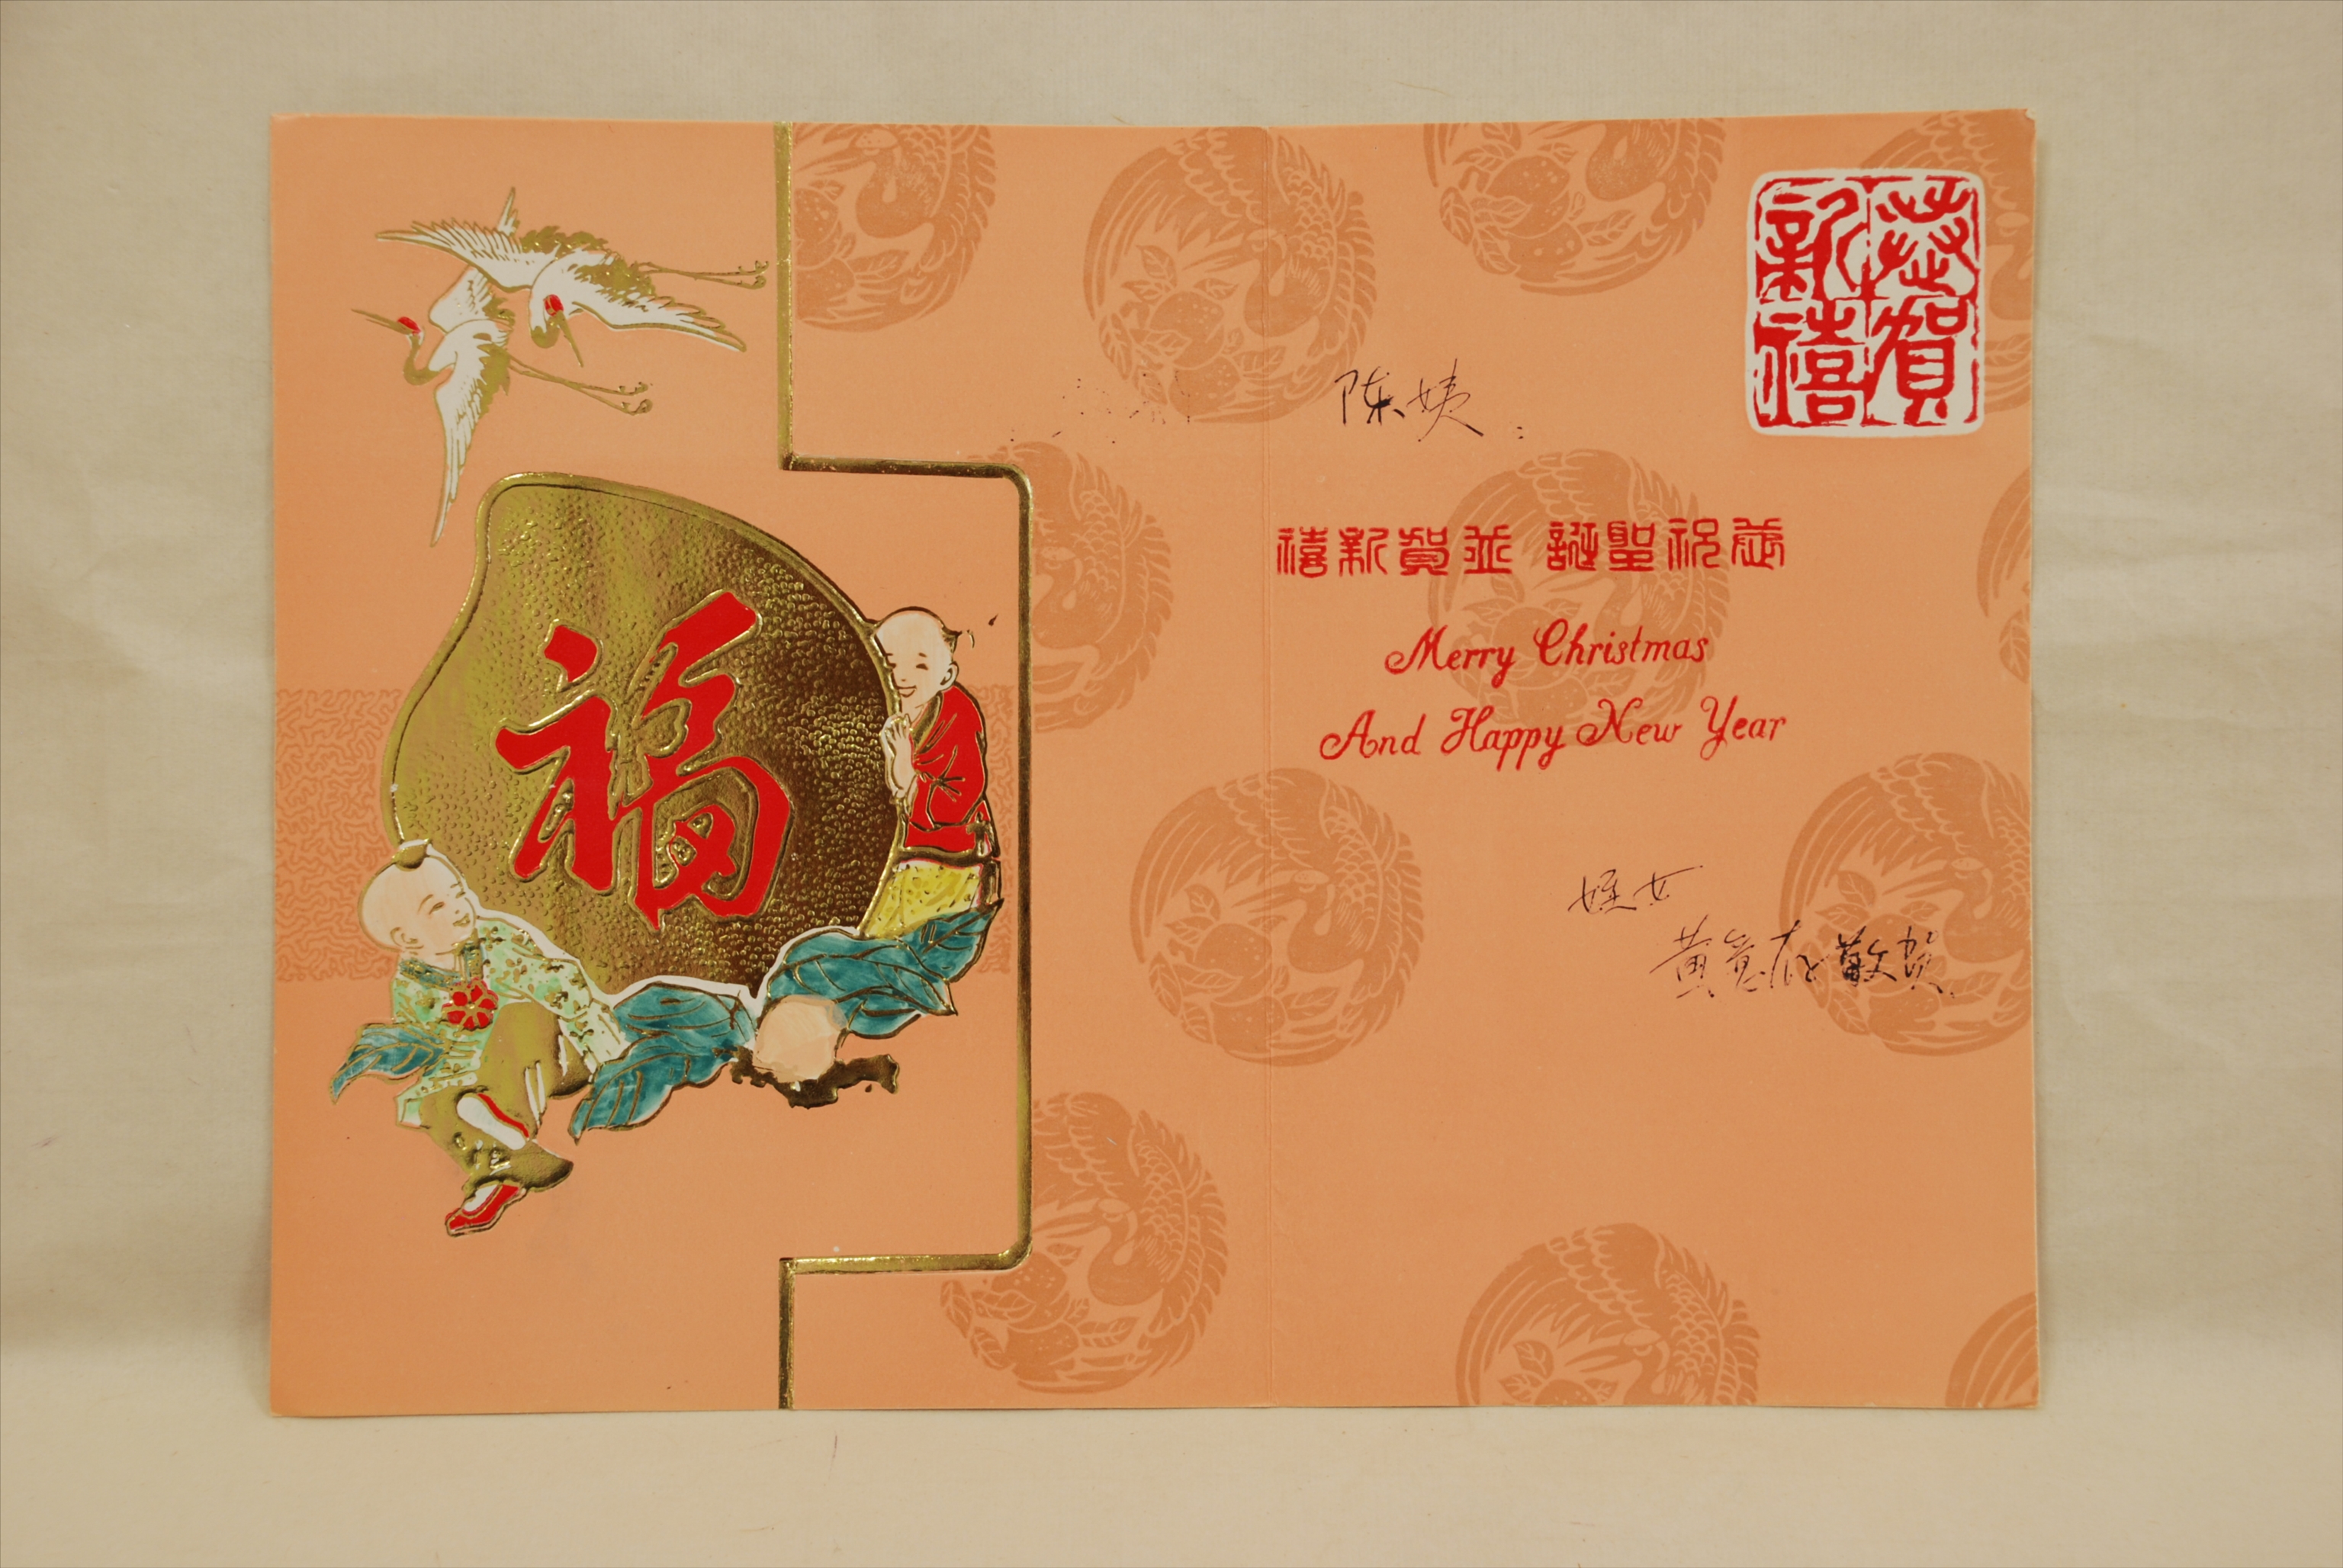 福
恭賀
新禧
陈姨：
恭祝聖誕 並賀新禧
Merry Christmas
And Happy New Year
姪女
黄 敬贺